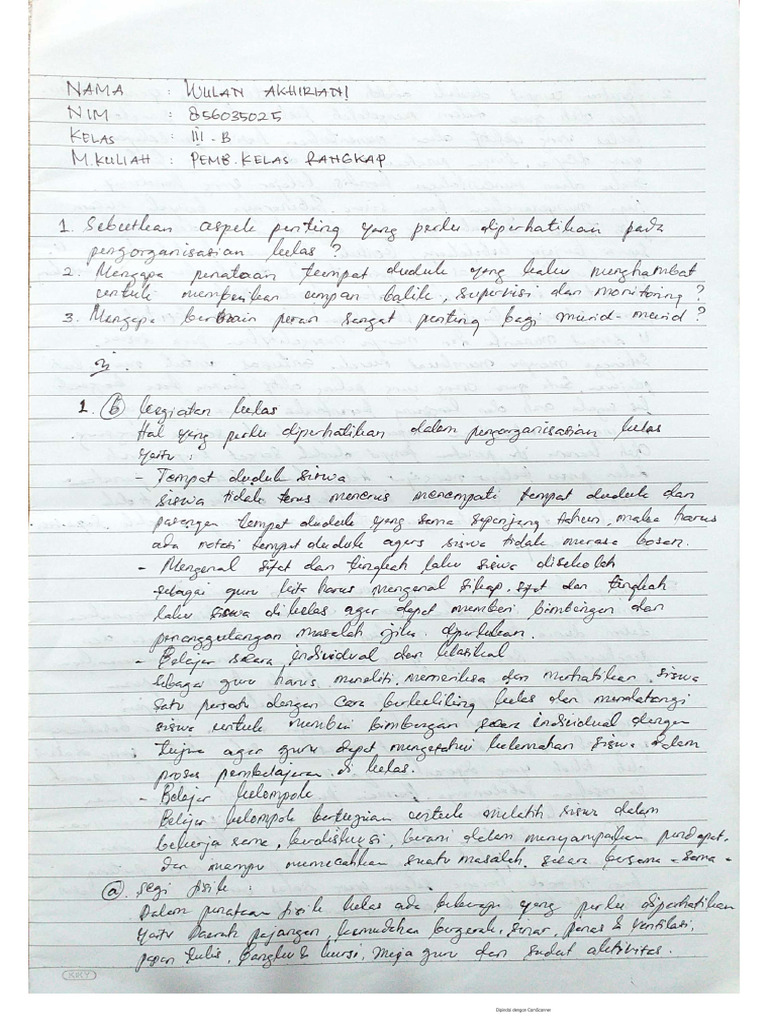 NAMA : WULAN AKHIRIANI
NIM : 856035025
KELAS : III-B
M.KULIAH : PEMB. KELAS RANGKAP
1. Sebutkan aspek penting yang perlu diperhatikan pada
pengorganisasian kelas ?
2. Mengapa penataan tempat duduk yang kaku menghambat
untuk memberikan umpan balik, supervisi dan monitoring ?
3. Mengapa bermain peran sangat penting bagi murid-murid ?
1. (b) kegiatan kelas
Hal yang perlu diperhatikan dalam pengorganisasian kelas
yaitu :
- Tempat duduk siswa
siswa tidak terus menerus menempati tempat duduk dan
pasangan tempat duduk yang sama sepanjang tahun, maka harus
ada rotasi tempat duduk agers siswa tidak merasa bosan.
- Mengenal sifat dan tingkah laku siswa disekolah
sebagai guru kita harus mengenal sikap, sifat dan tingkah
laku siswa di kelas agar dapat memberi bimbingan dan
penanggulangan masalah jika diperlukan.
- Belajar secara individual dan klasikal
sebagai guru harus meneliti, memeriksa dan mengatakan siswa
satu persatu dengan cara berkeliling kelas dan mendatangi
siswa untuk memberi bimbingan secara individual dengan
tujuan agar guru dapat mengetahui kelemahan siswa dalam
proses pembelajaran di kelas.
- Belajar kelompok
Belajar kelompok bertujuan untuk melatih siswa dalam
bekerja sama, berdiskusi, berani dalam menyampaikan pendapat,
dan mampu memecahkan suatu masalah secara bersama-sama.
(a) segi fisik :
Dalam penataan fisik kelas ada beberapa yang perlu diperhatikan
yaitu Daerah pajangan, kemudahan bergerak, sinar, panas & Ventilasi,
papan tulis, Bangku & kursi, Meja guru dan sudut aktivitas.
KKY
Dipindai dengan CamScanner